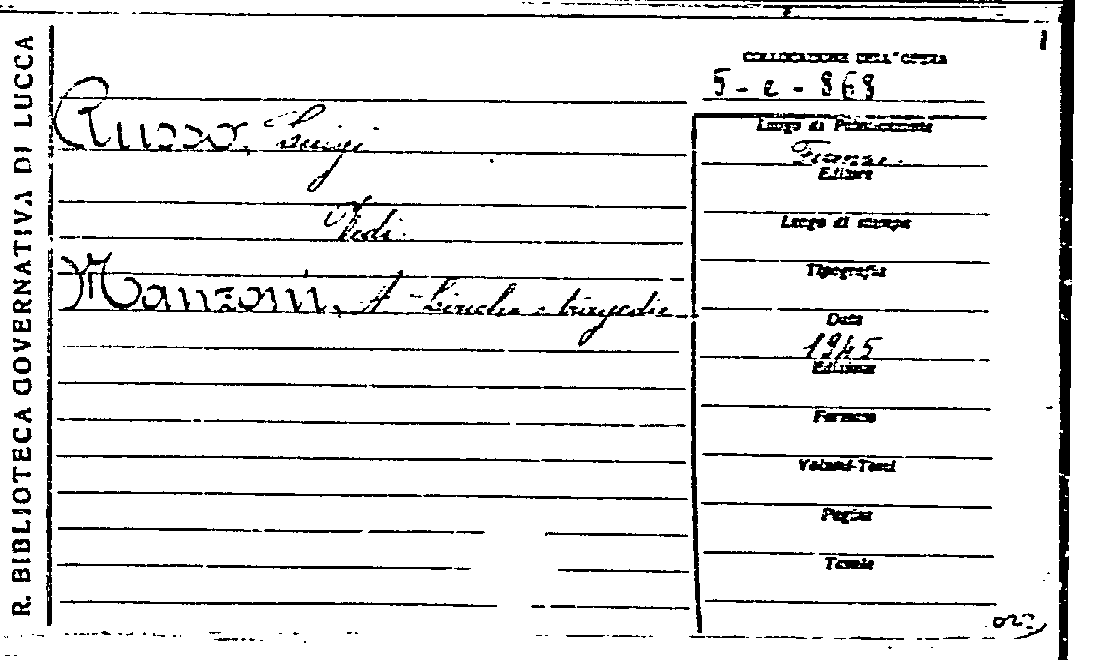 R. BIBLIOTECA GOVERNATIVA DI LUCCA
COLLOCAZIONE DELL'OPERA
5-e-869
Russo, Luigi
Vedi
Manzoni, A. Liriche e tragedie
Luogo di Pubblicazione
Firenze
Editore
Luogo di stampa
Tipografia
Data
1945
Edizione
Formato
Volumi-Tomi
Pagine
Tavole